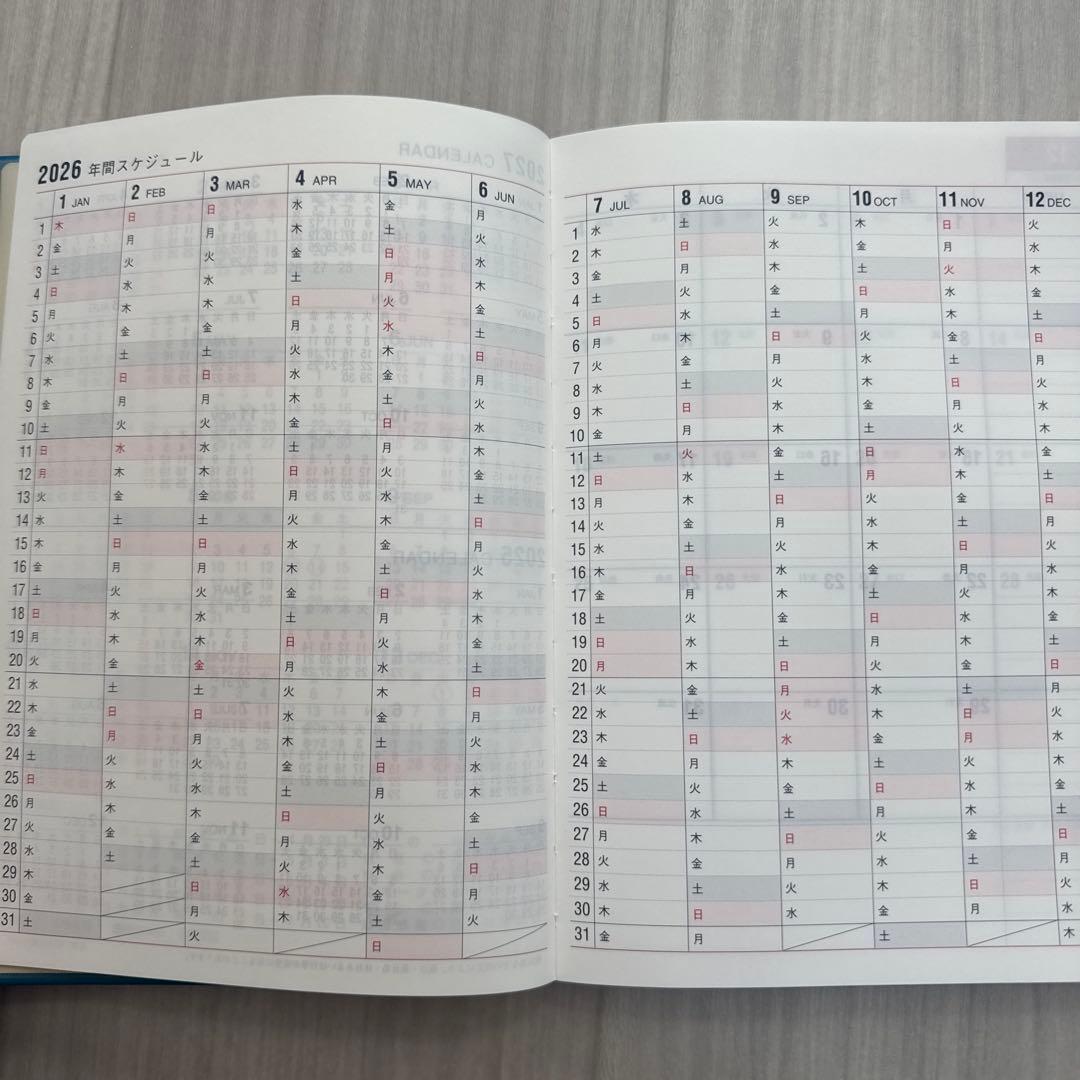 2026 年間スケジュール
1 JAN 2 FEB 3 MAR 4 APR 5 MAY 6 JUN
1 木 日 日 水 金 月
2 金 月 月 木 土 火
3 土 火 火 金 日 水
4 日 水 水 土 月 木
5 月 木 木 日 火 金
6 火 金 金 月 水 土
7 水 土 土 火 木 日
8 木 日 日 水 金 月
9 金 月 月 木 土 火
10 土 火 火 金 日 水
11 日 水 水 土 月 木
12 月 木 木 日 火 金
13 火 金 金 月 水 土
14 水 土 土 火 木 日
15 木 日 日 水 金 月
16 金 月 月 木 土 火
17 土 火 火 金 日 水
18 日 水 水 土 月 木
19 月 木 木 日 火 金
20 火 金 金 月 水 土
21 水 土 土 火 木 日
22 木 日 日 水 金 月
23 金 月 月 木 土 火
24 土 火 火 金 日 水
25 日 水 水 土 月 木
26 月 木 木 日 火 金
27 火 金 金 月 水 土
28 水 土 土 火 木 日
29 木 日 水 金 月
30 金 月 木 土 火
31 土 火 日
7 JUL 8 AUG 9 SEP 10 OCT 11 NOV 12 DEC
1 水 土 火 木 日 火
2 木 日 水 金 月 水
3 金 月 木 土 火 木
4 土 火 金 日 水 金
5 日 水 土 月 木 土
6 月 木 日 火 金 日
7 火 金 月 水 土 月
8 水 土 火 木 日 火
9 木 日 水 金 月 水
10 金 月 木 土 火 木
11 土 火 金 日 水 金
12 日 水 土 月 木 土
13 月 木 日 火 金 日
14 火 金 月 水 土 月
15 水 土 火 木 日 火
16 木 日 水 金 月 水
17 金 月 木 土 火 木
18 土 火 金 日 水 金
19 日 水 土 月 木 土
20 月 木 日 火 金 日
21 火 金 月 水 土 月
22 水 土 火 木 日 火
23 木 日 水 金 月 水
24 金 月 木 土 火 木
25 土 火 金 日 水 金
26 日 水 土 月 木 土
27 月 木 日 火 金 日
28 火 金 月 水 土 月
29 水 土 火 木 日 火
30 木 日 水 金 月 水
31 金 月 土 木